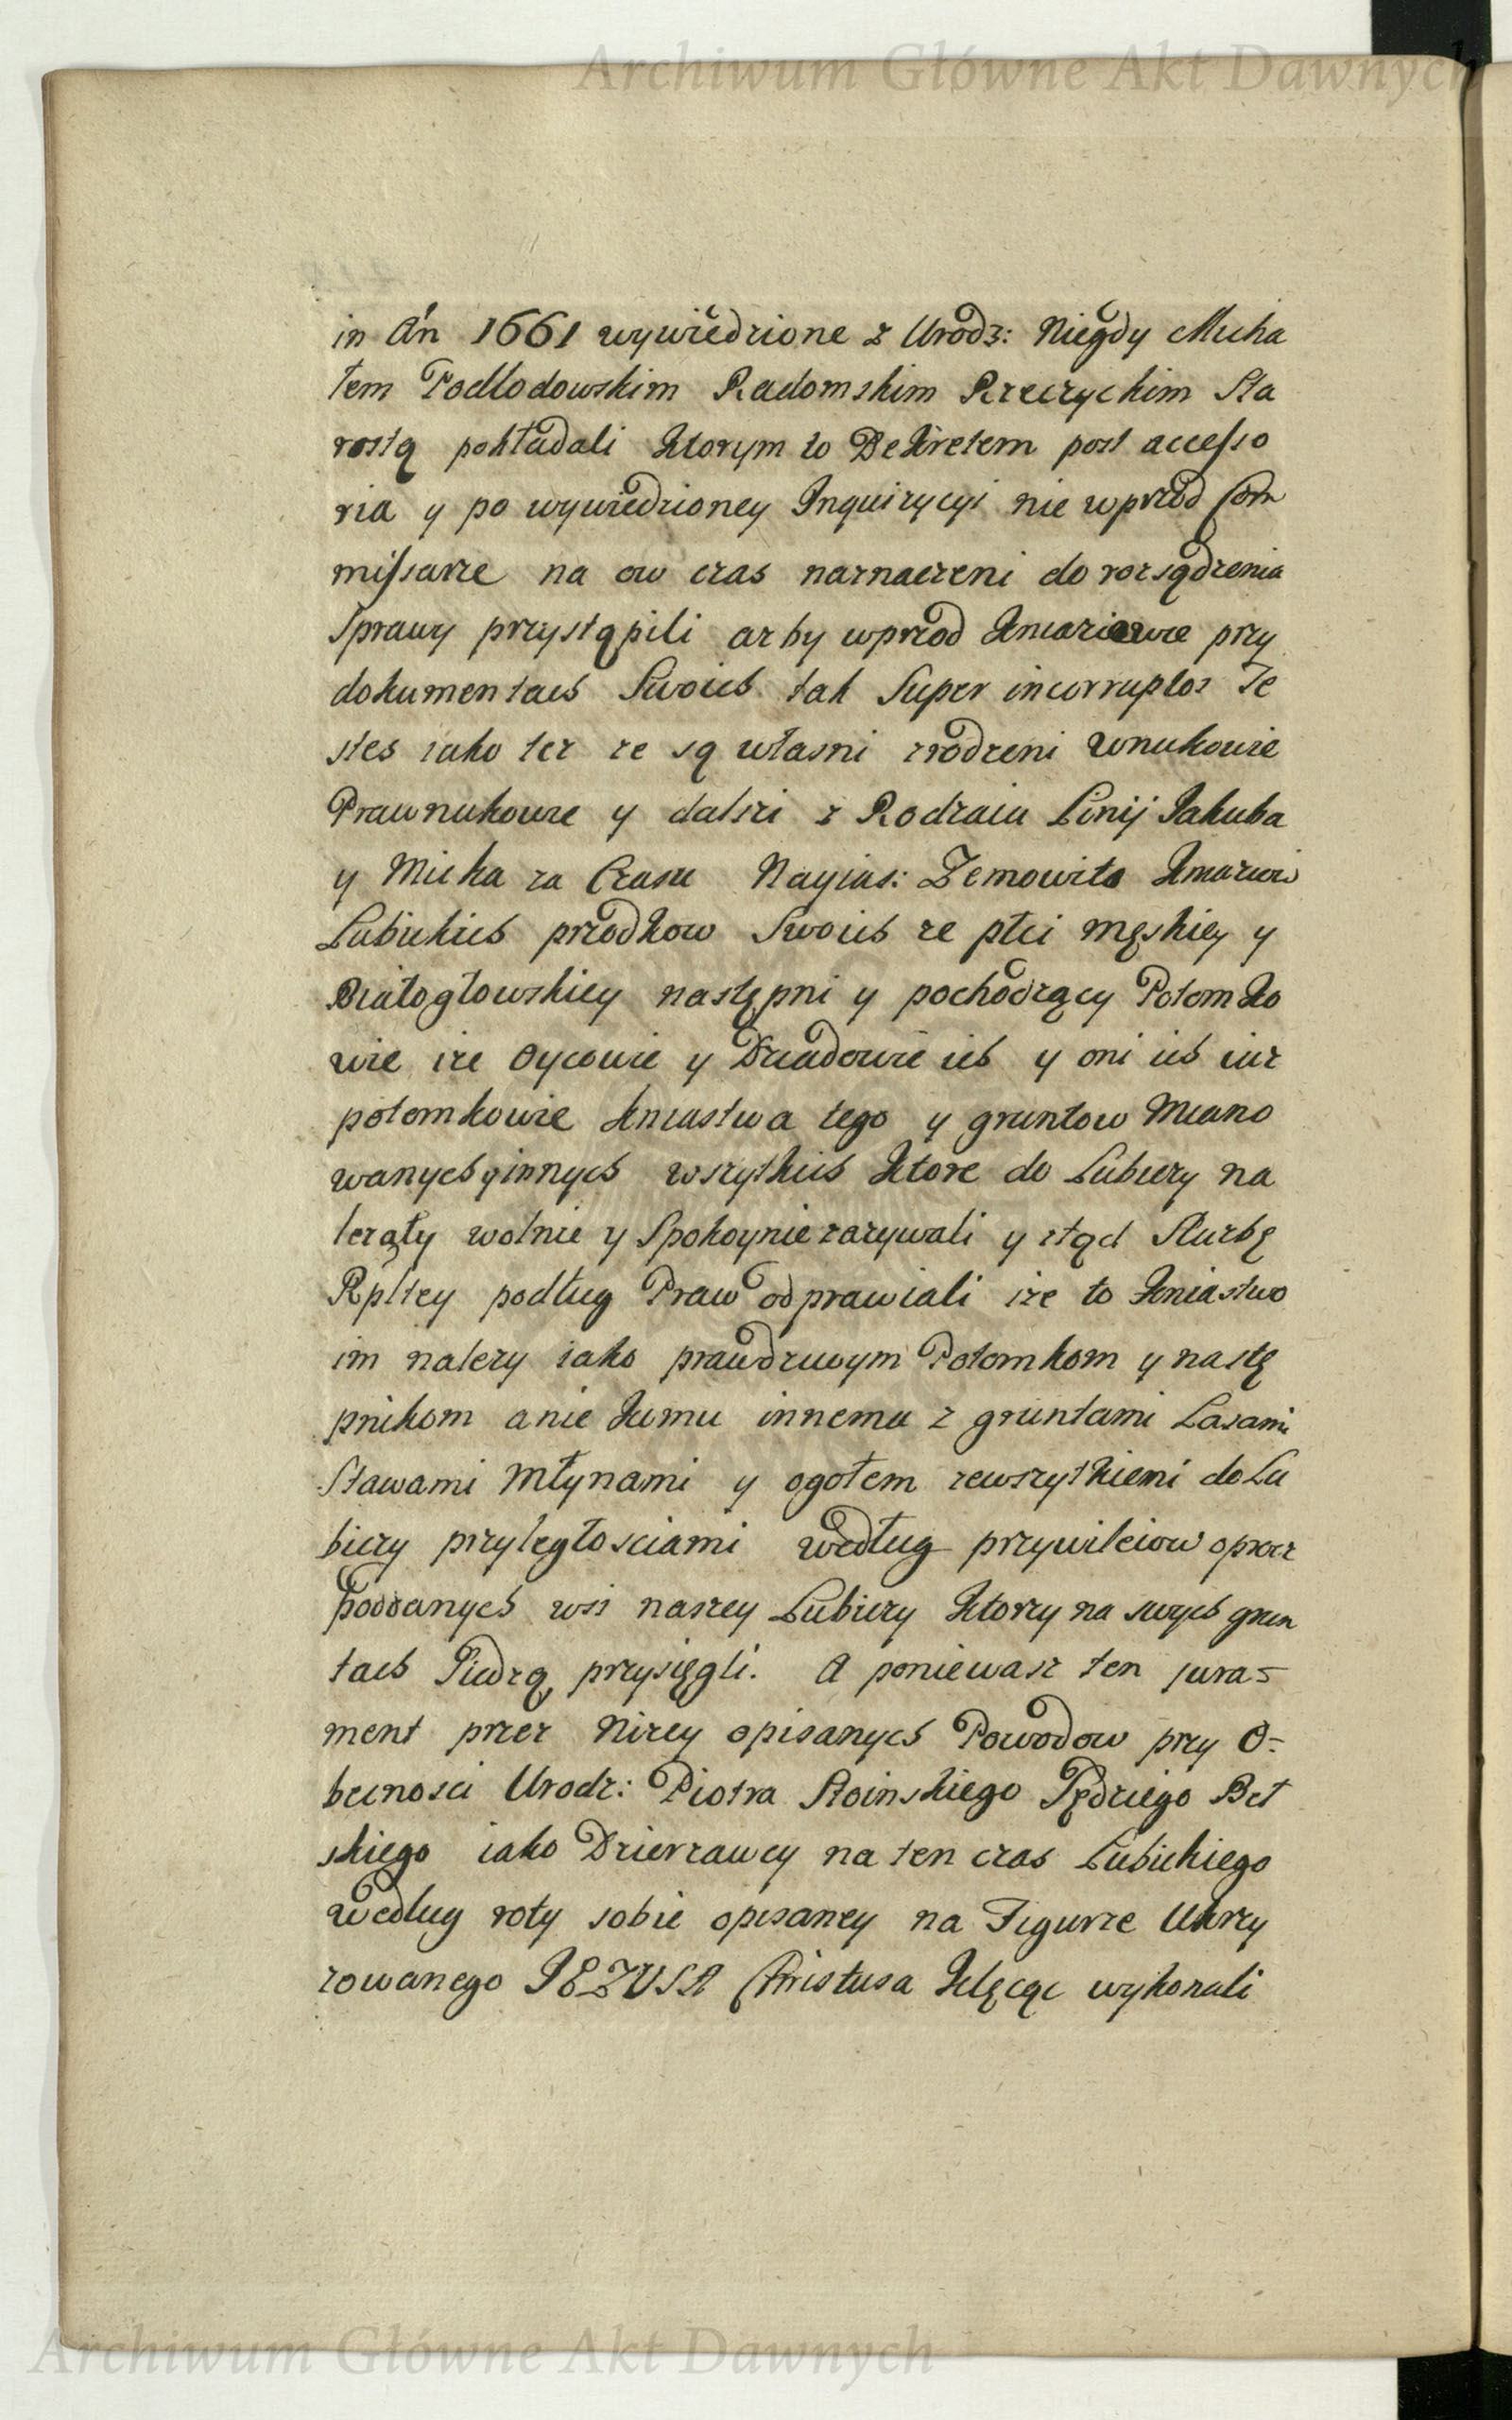 Archiwum Główne Akt Dawnych
in An 1661 wywiedzione z Urodz: Niegdy Micha
łem Podlodowskim Radomskim Rzeczyckim Sta
rostą pokładali ktorym to Dekretem post accesso
ria y po wywiedzioney Inquizycyi nie wprzod Com
missarze na ow czas naznaczeni do rozsądzenia
Sprawy przystąpili azby wprzod Kniaziowie przy
dokumentach Swoich tak Super incorruptos Te
stes iako tez ze są własni zrodzeni Wnukowie
Prawnukowie y dalszi z Rodzaiu Linij Jakuba
y Micka za Czasu Nayias: Zemowita Kniaziow
Lubickich przodkow Swoich ze płci męskiey y
Białogłowskiey następni y pochodzący Potomko
wie ize Oycowie y Dziadowie ich y oni ich iuz
potomkowie kniastwa tego y gruntow Miano
wanych y innych wszytkich ktore do Lubiczy na
lezały wolnie y Spokoynie zazywali y ztąd Słuzbę
Rpltey podług Praw odprawiali ize to kniastwo
im nalezy iako prawdziwym Potomkom y nastę
pnikom a nie kumu innemu z gruntami Lasami
Stawami Młynami y ogołem zewszytkiemi do Lu
biczy przyległosciami według przywileiow oprocz
Poddanych wsi naszey Lubiczy ktorzy na swych grun
tach Siedzą przysięgli. A poniewasz ten jura=
ment przez Nizey opisanych Powodow przy O=
becnosci Urodz: Piotra Stoinskiego Sędziego Beł
skiego iako Dzierzawcy na ten czas Lubickiego
według roty sobie opisaney na Figurze Ukrzy
zowanego JEZUSA Christusa klęcąc wykonali
Archiwum Główne Akt Dawnych